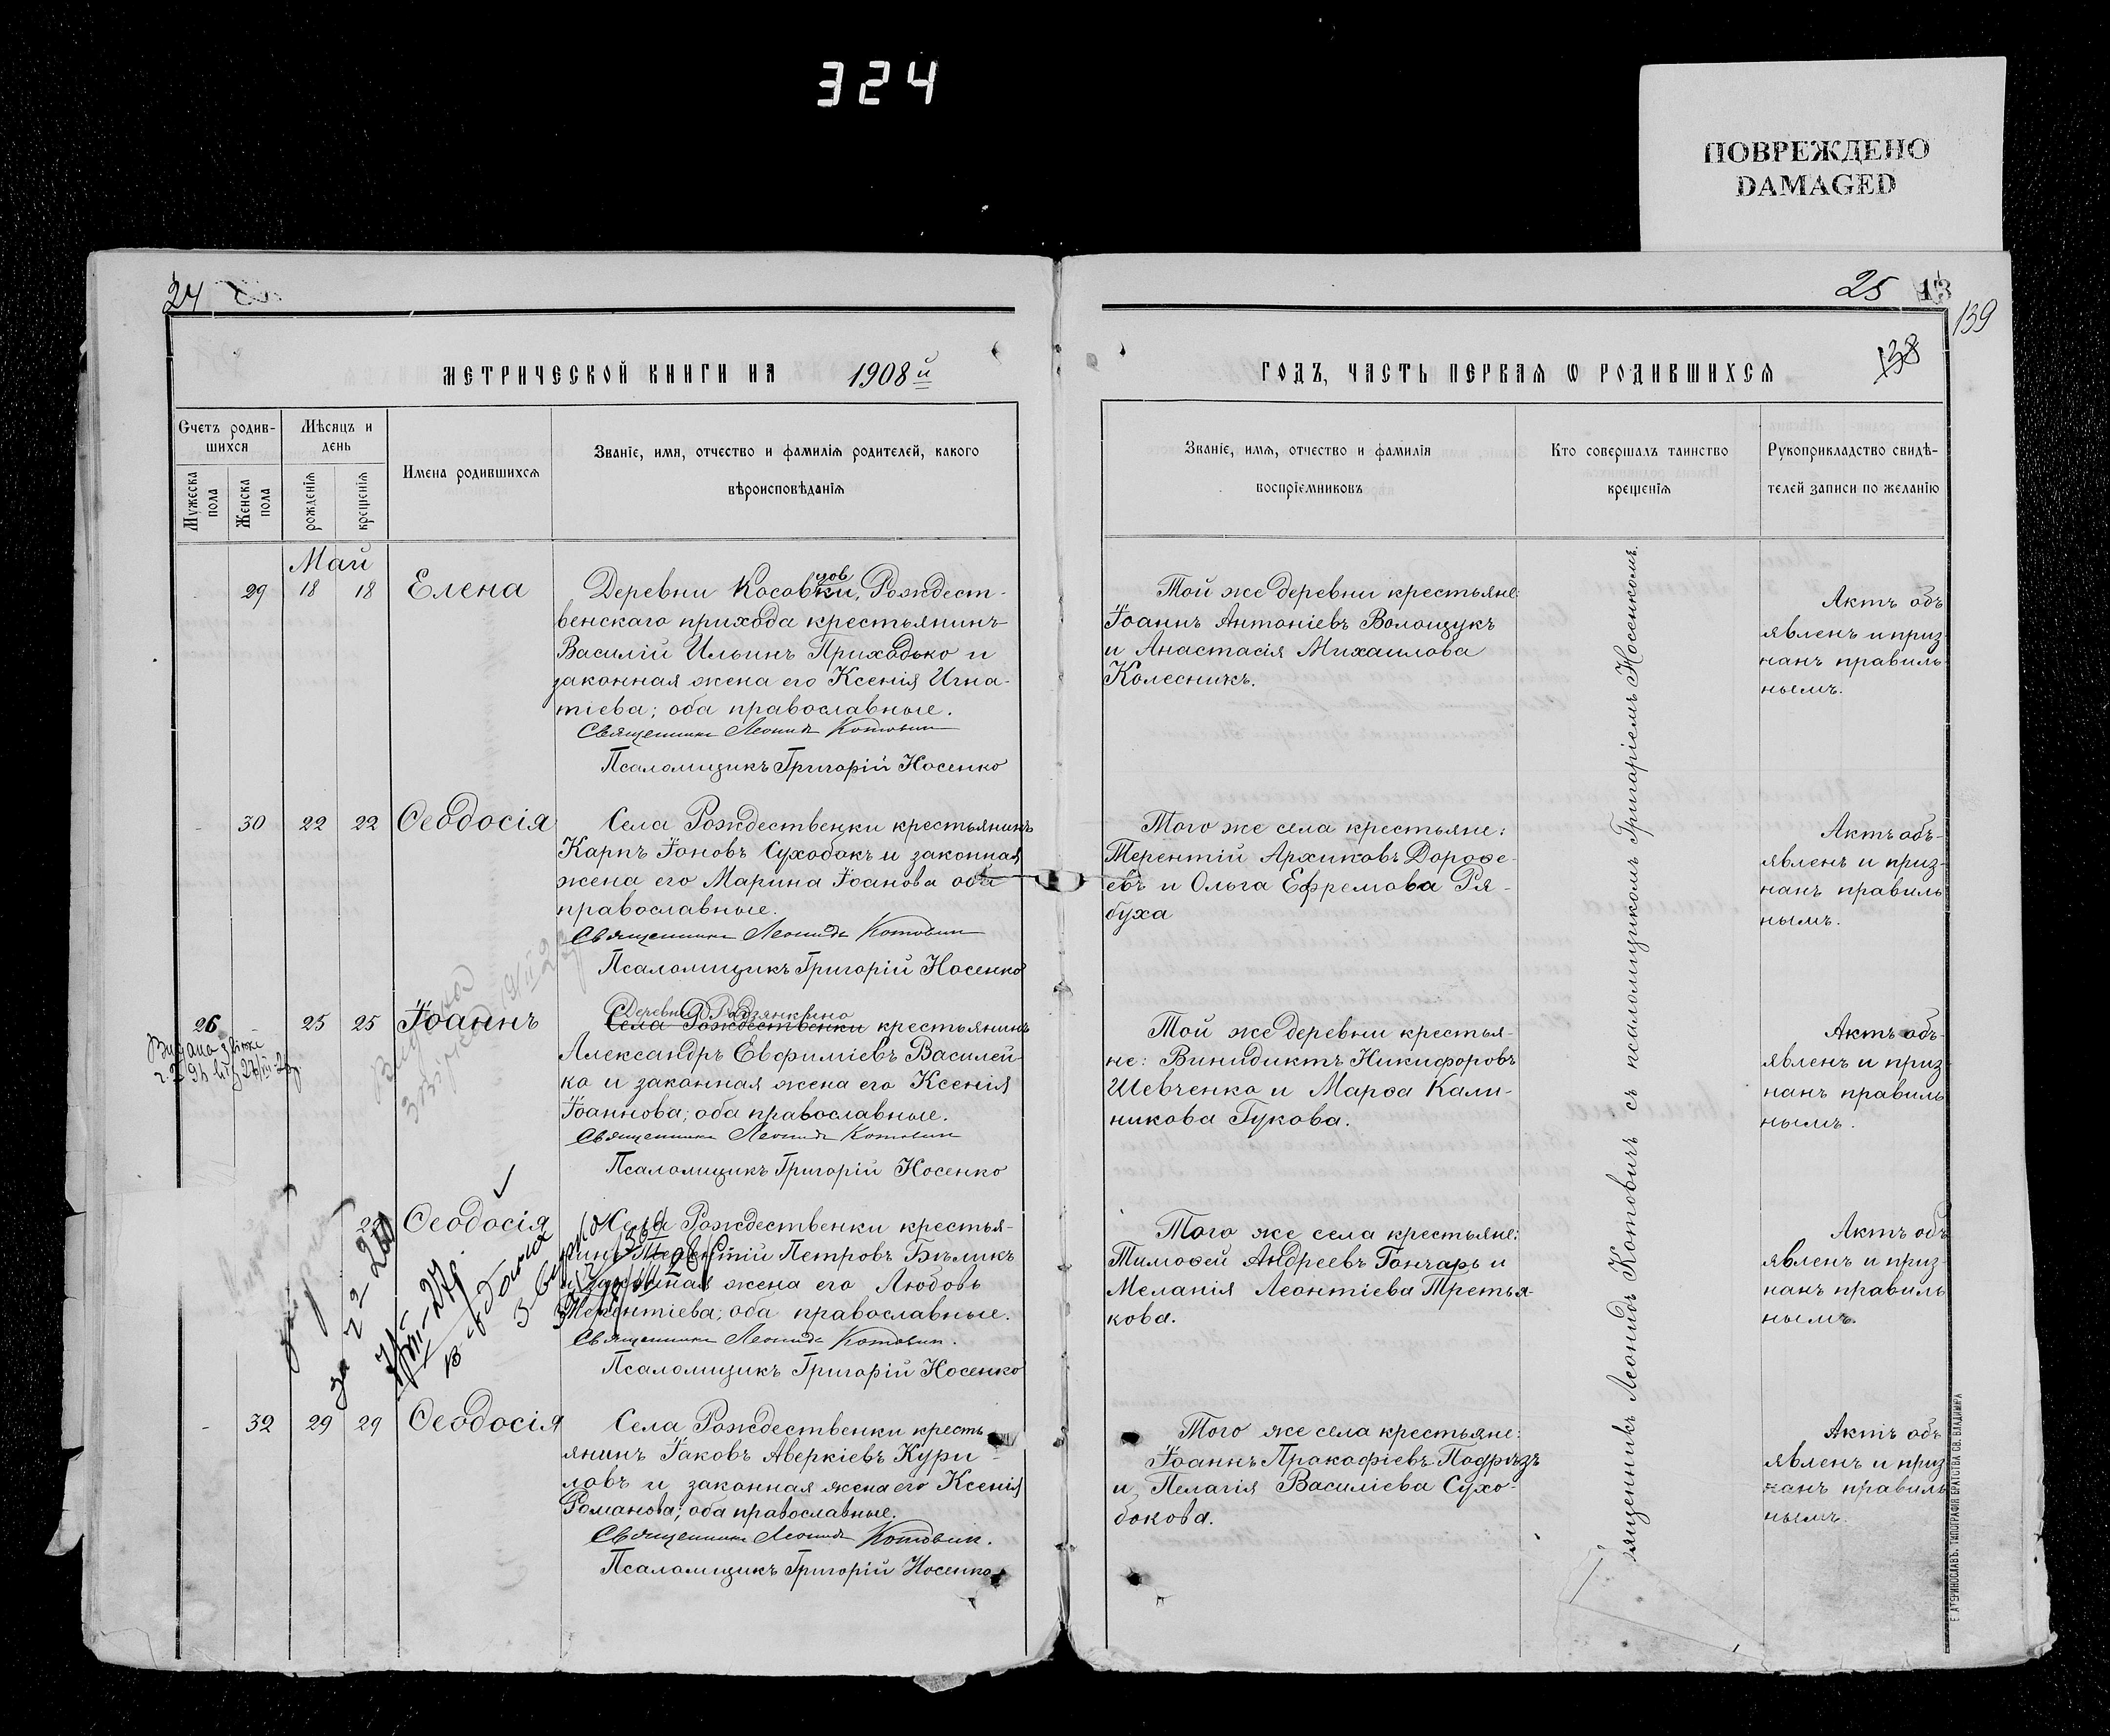 324
ПОВРЕЖДЕНО
DAMAGED
24
25
13
139
138
МЕТРИЧЕСКОЙ КНИГИ НА 1908й
ГОДЪ, ЧАСТЬ ПЕРВАЯ Ѡ РОДИВШИХСЯ
Счетъ родив-
шихся
Мужеска пола
Женска пола
Мѣсяцъ и
день
рожденія
крещенія
Имена родившихся
Званіе, имя, отчество и фамилія родителей, какого
вѣроисповѣданія
Званіе, имя, отчество и фамилія
воспріемниковъ
Кто совершалъ таинство
крещенія
Рукоприкладство свидѣ-
телей записи по желанію
Май
29 18 18 Елена
Деревни Косовки, Рождест-
венскаго прихода крестьянинъ
Василій Ильинъ Приходько и
законная жена его Ксенія Игна-
тіева; оба православные.
Священникъ Леонидъ Котович
Псаломщикъ Григорій Носенко
Той же деревни крестьяне:
Іоаннъ Антоніевъ Волощукъ
и Анастасія Михаилова
Колесникъ.
Актъ объ
явленъ и приз-
нанъ правиль-
нымъ.
- 30 22 22 Ѳеодосія
Села Рождественки крестьянинъ
Карпъ Іоновъ Сухобокъ и законная
жена его Марина Іоанова оба
православные.
Священникъ Леонидъ Котович
Псаломщикъ Григорій Носенко
Того же села крестьяне:
Терентій Архиповъ Дороѳе-
евъ и Ольга Ефремова Ря-
буха
Актъ объ-
явленъ и приз-
нанъ правиль
нымъ.
26 - 25 25 Іоаннъ
Деревни Родзянкино
Села Рождественки крестьянинъ
Александръ Евфиміевъ Василей-
ко и законная жена его Ксенія
Іоаннова; оба православные.
Священникъ Леонидъ Котович
Псаломщикъ Григорій Носенко
Той же деревни крестья-
не: Винидиктъ Никифоровъ
Шевченко и Марѳа Кали-
никова Гукова.
Актъ объ-
явленъ и приз-
нанъ правиль
нымъ.
Ѳеодосія
Села Рождественки крестья-
Петровъ Бѣликъ
жена его Любовь
оба православные.
Священникъ Леонидъ Котович.
Псаломщикъ Григорій Носенко
Того же села крестьяне:
Тимоѳей Андреевъ Гончаръ и
Меланія Леонтіева Третья-
кова.
Актъ объ
явленъ и приз-
нанъ правиль
нымъ.
- 32 29 29 Ѳеодосія
Села Рождественки кресть-
янинъ Іаковъ Аверкіевъ Кури-
ловъ и законная жена его Ксенія
Романова; оба православные.
Священникъ Леонидъ Котович.
Псаломщикъ Григорій Носенко
Того же села крестьяне:
Іоаннъ Прокофіевъ Подрѣзъ
и Пелагія Василіева Сухо-
бокова.
Актъ объ
явленъ и приз
нанъ правиль
нымъ.
Леонидъ Котовичъ съ псаломщикомъ Григоріемъ Носенкомъ.
ЕКАТЕРИНОСЛАВЪ. ТИПОГРАФІЯ БРАТСТВА СВ. ВЛАДИМІРА